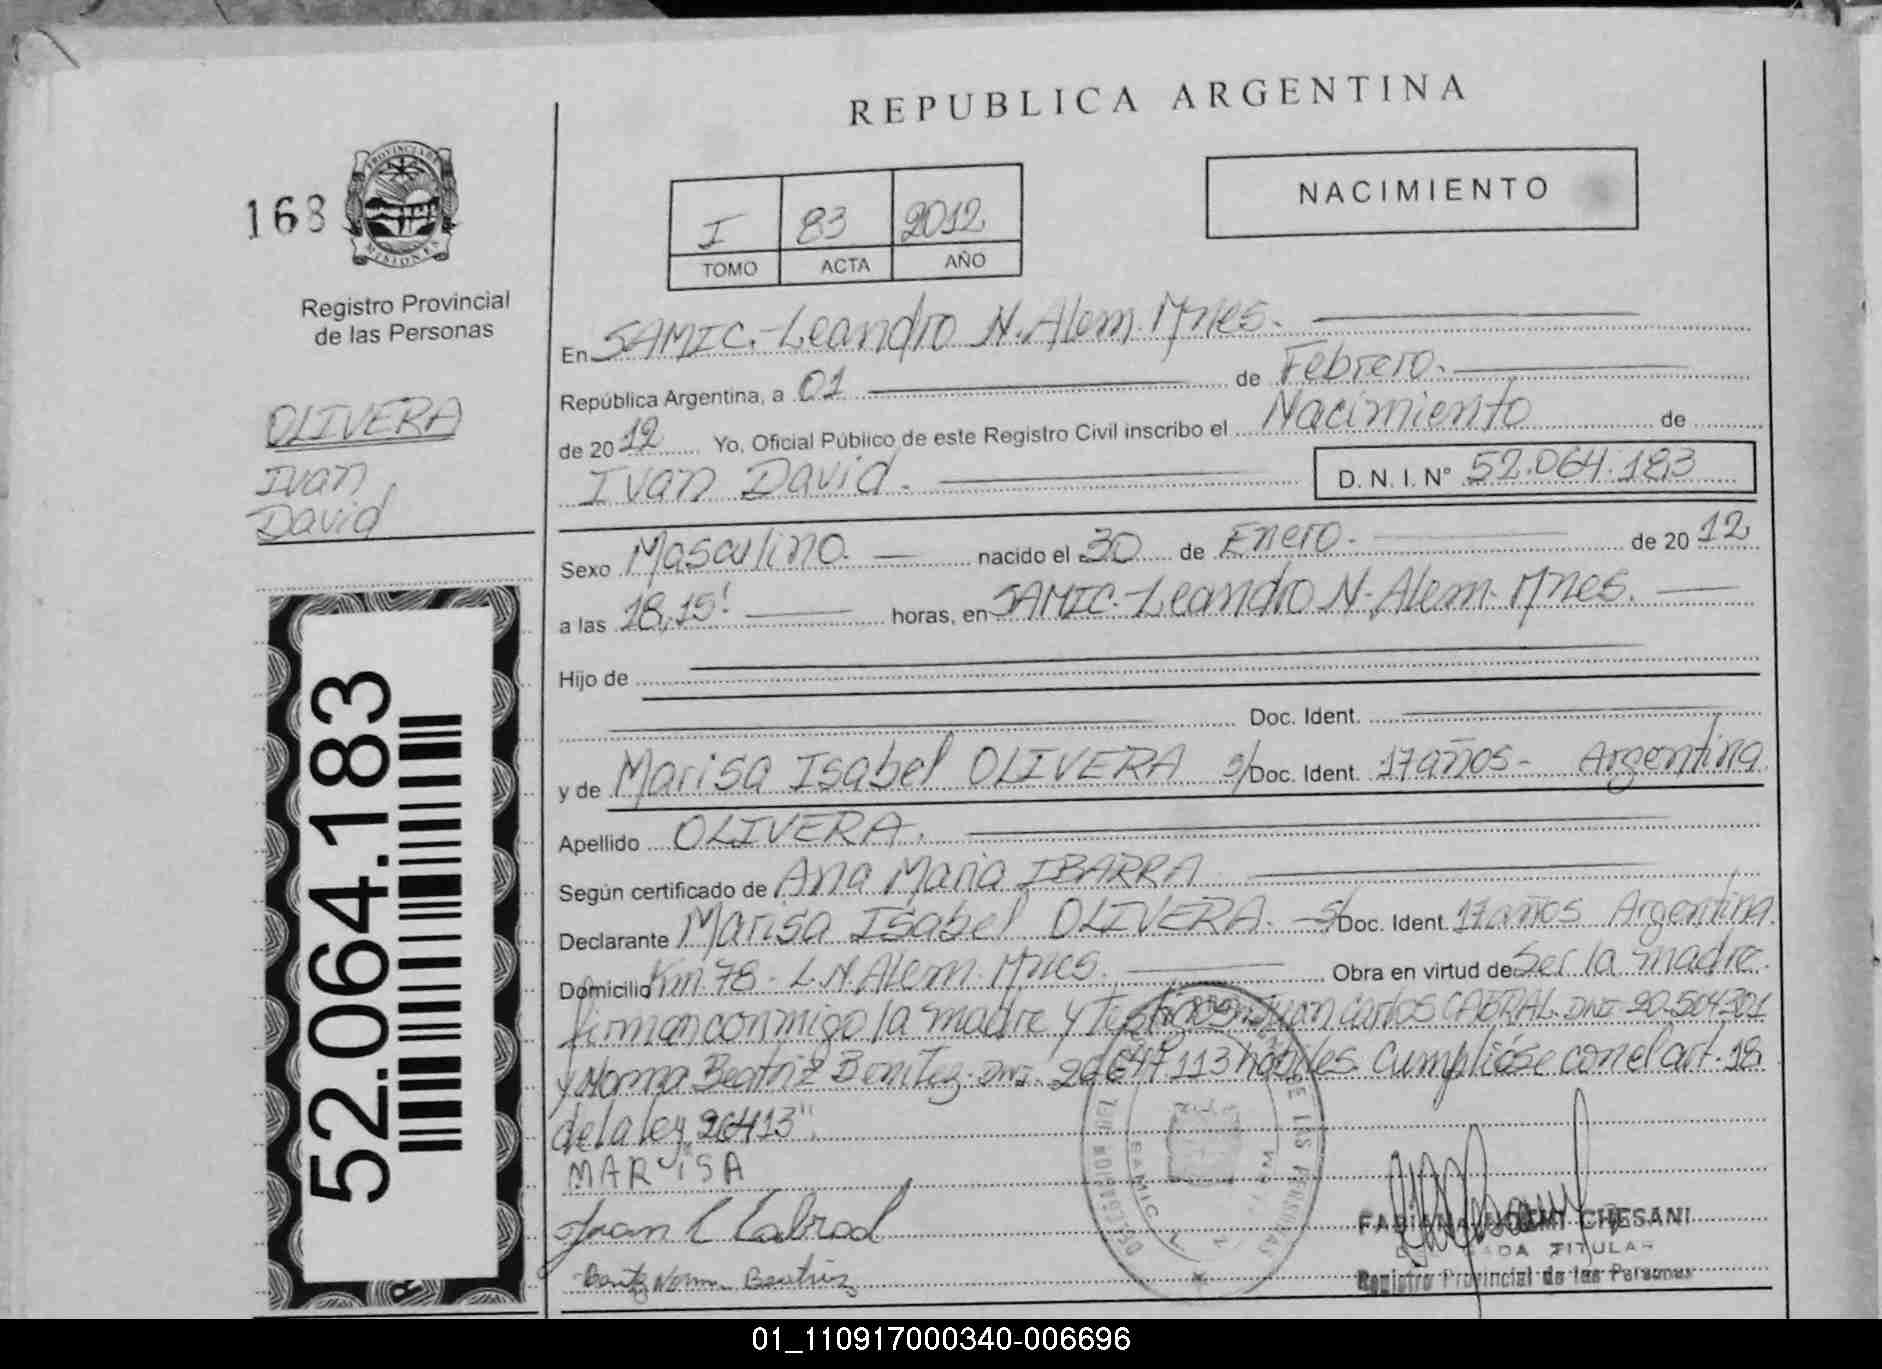 REPUBLICA ARGENTINA
NACIMIENTO
168
PROVINCIA DE MISIONES
Registro Provincial
de las Personas
I 83 2012
TOMO ACTA AÑO
OLIVERA
Ivan
David
52.064.183
En SAMIC.-Leandro N. Alem. Mnes.
República Argentina, a 01 de Febrero.
de 2012 Yo, Oficial Público de este Registro Civil inscribo el Nacimiento de
Ivan David. D. N. I. Nº 52.064.183
Sexo Masculino. nacido el 30 de Enero. de 2012
a las 18,15' horas, en SAMIC.-Leandro N. Alem. Mnes.
Hijo de
Doc. Ident.
y de Marisa Isabel OLIVERA s/Doc. Ident. 17 años - Argentina
Apellido OLIVERA.
Según certificado de Ana Maria IBARRA
Declarante Marisa Isabel OLIVERA. s/Doc. Ident. 17 años Argentina.
Domicilio Km. 78 - L.N. Alem. Mnes. Obra en virtud de Ser la madre.
firman conmigo la madre y Juan Carlos CABRAL. DNI 20.504.301
y Norma Beatriz Benitez. DNI. 113 habiles. Cumplióse con el art. 18
de la ley 26413".
MARISA
Juan C Cabral
Benitz Norma Beatriz
SAMIC
DE LAS PERSONAS
FABIANA NOEMI CHESANI
TITULAR
Registro Provincial de las Personas
01_110917000340-006696